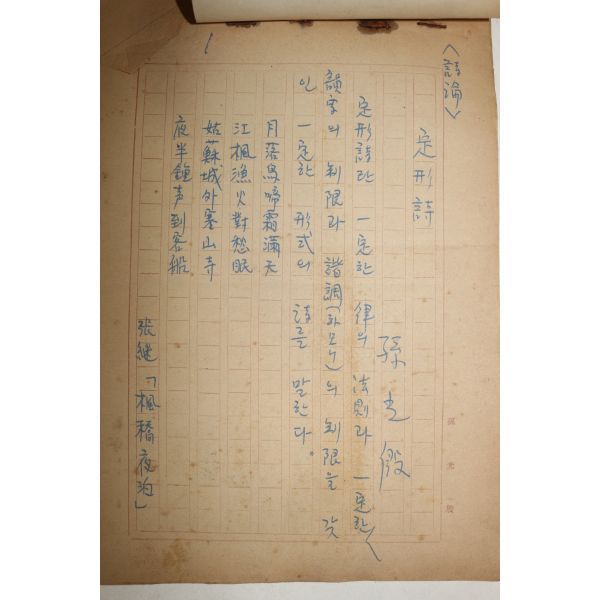 〈詩論〉
定形詩
孫光殷
定形詩란 一定한 律의 法則과 一定한
韻字의 制限과 諧調(하모니)의 制限을 갖
인 一定한 形式의 詩를 말한다。
月落烏啼霜滿天
江楓漁火對愁眠
姑蘇城外寒山寺
夜半鐘声到客船
張継「楓橋夜泊」
1
孫光殷